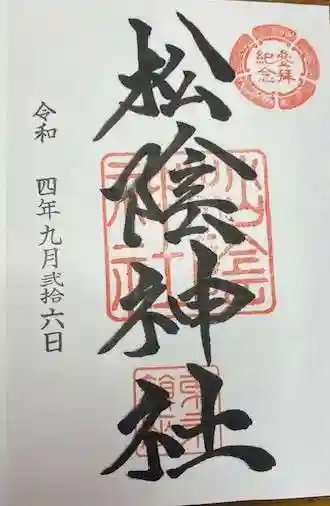 參拜
紀念
松陰神社
令和 四年九月弐拾六日